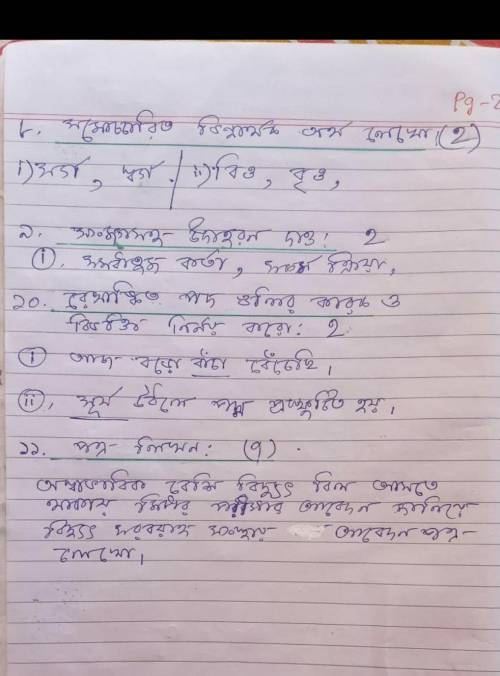 Pg-2
৮. সমোচ্চারিত ভিন্নার্থক অর্থ লেখো। (2)
i) সর্গ, স্বর্গ. / ii) বিত্ত, বৃত্ত,
৯. সংজ্ঞাসহ উদাহরন দাও: 2
i. সমধাতুজ কর্তা,
১০. রেখাঙ্কিত পদ গুলির কারক ও
বিভক্তি নির্নয় করো: 2
i আজ বড়ো বাঁচা বেঁচেছি।
ii. সূর্য উঠলে পদ্ম প্রস্ফুটিত হয়।
১১. পত্র লিখন: (৭).
অস্বাভাবিক বেশি বিদ্যুৎ বিল আসতে
থাকায় মিটার পরীক্ষার আবেদন জানিয়ে
বিদ্যুৎ সরবরাহ সংস্থায় আবেদন পত্র
লেখো।